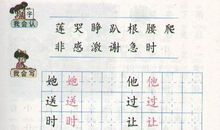 字
我会认
莲 哭 睁 趴 根 腰 爬
非 感 激 谢 急 时
我会写
她 她 他 他
送 送 过 过
时 时 让 让